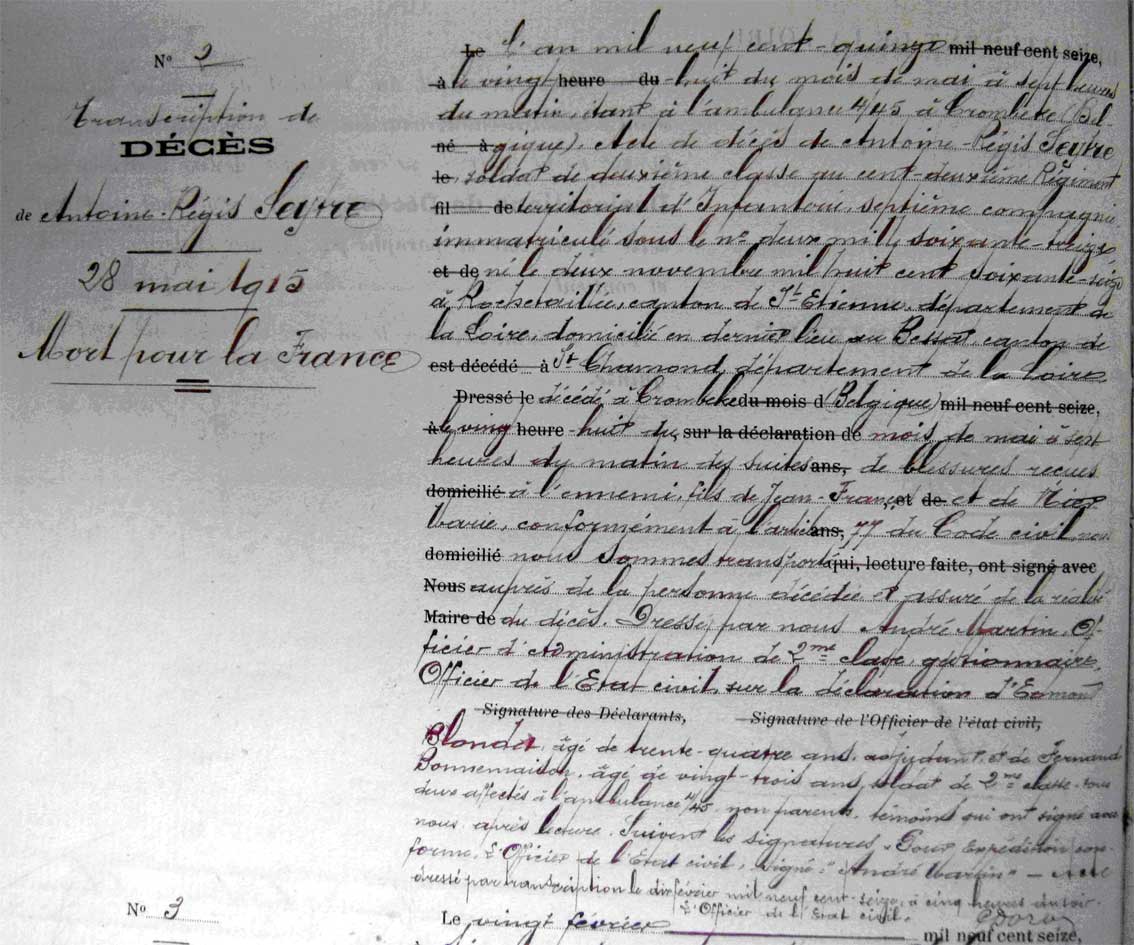 N° 2
Transcription de
DÉCÈS
de Antoine-Régis Seytre
28 mai 1915
Mort pour la France
Le L'an mil neuf cent-quinze mil neuf cent seize,
à le vingt heure du huit du mois de mai à sept heures
du matin, étant à l'ambulance 4/45 à Crombeke (Bel-
né à gique). Acte de décès de Antoine-Régis Seytre
le soldat de deuxième classe au cent-deuxième Régiment
fil de territorial d'Infanterie, septième compagnie
immatriculé sous le n° deux mille soixante-treize
et de né le deux novembre mil huit cent soixante-seize
à Rochetaillée, canton de St Etienne, département de
la Loire, domicilié en dernier lieu au Bessat, canton de
est décédé à St Chamond, département de la Loire,
Dressé le décédé à Crombeke du mois d (Belgique) mil neuf cent seize,
à le ving heure huit du, sur la déclaration de mois de mai à sept
heures du matin des suites ans, de blessures reçues
domicilié à l'ennemi, fils de Jean-Franç et de et de
Marie, conformément à l'article ans, 77 du Code civil, nous
domicilié nous sommes transporté qui, lecture faite, ont signé avec
Nous auprès de la personne décédée et assuré de la réalité
Maire de du décès. Dressé par nous André Martin, Of-
ficier d'Administration de 2me classe, gestionnaire,
Officier de l'Etat civil, sur la déclaration d'Edmond
Signature des Déclarants, Signature de l'Officier de l'état civil,
Blondet, âgé de trente-quatre ans, adjudant, et de Fernand
Bonnemaison, âgé de vingt-trois ans, soldat de 2me classe, tous
deux affectés à l'ambulance 4/45, non parents, témoins qui ont signé avec
nous après lecture. Suivent les signatures. Pour Expédition con-
forme, L'Officier de l'Etat civil, signé: "André Martin" — Acte
dressé par transcription le dix février mil neuf cent-seize, à cinq heures du soir.
L'Officier de l'Etat civil.
N° 3
Le vingt février mil neuf cent seize,